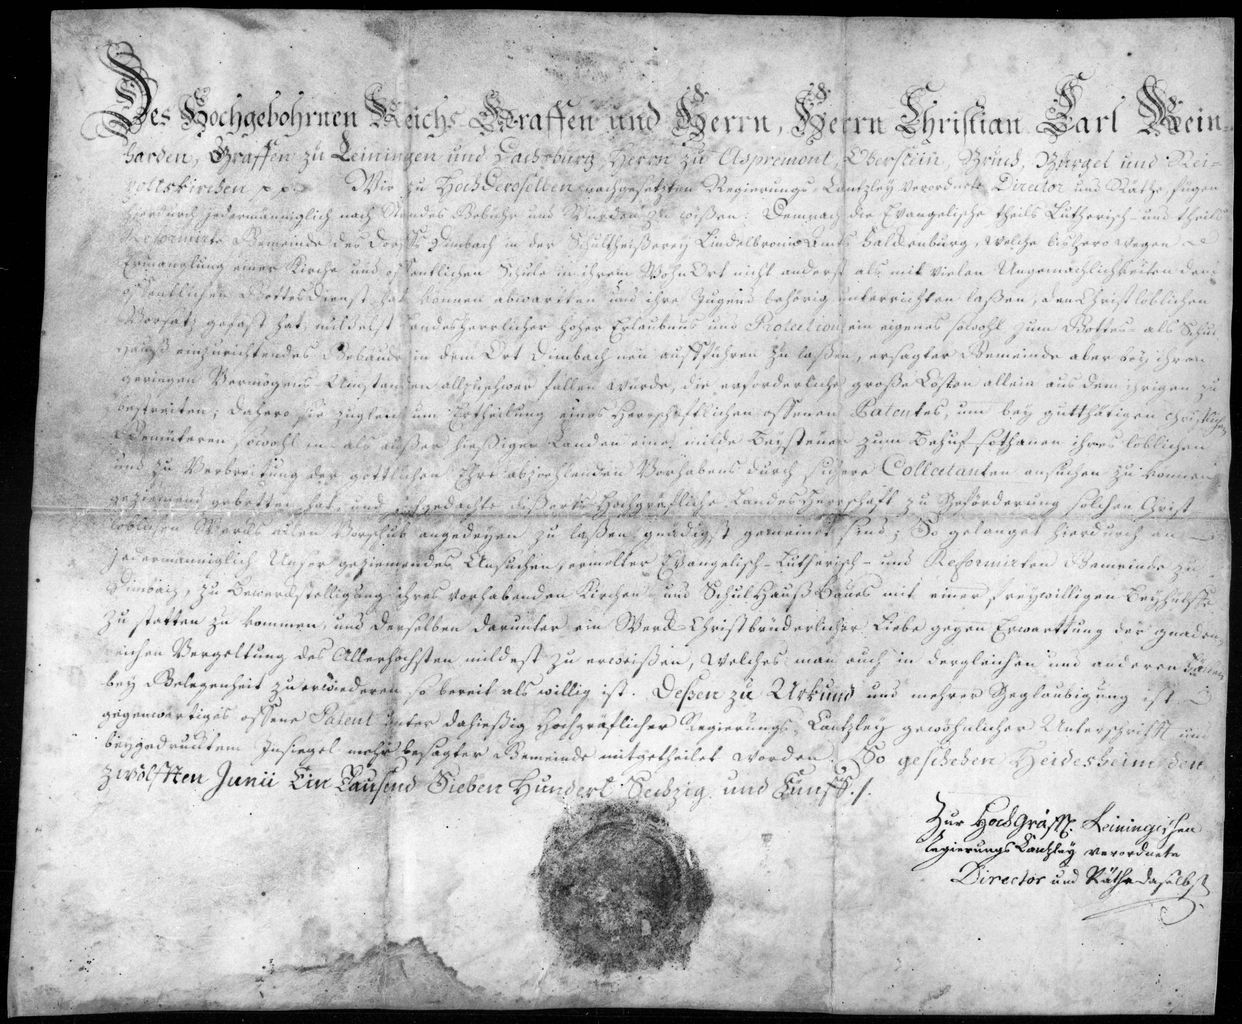 Des Hochgebohrnen Reichs Graffen und Herrn, Herrn Christian Carl Rein-
harden, Graffen zu Leiningen und Dachsburg, Herrn zu Aspremont, Oberstein, Bruch, Bürgel und Rei-
poltskirchen p. p. Wir zu HochDeroselben nachgesetzten Regierungs-Cantzley verordnete Director und Räthe, fügen
hierdurch jedermänniglich nach Standes Gebühr und Würden zu wißen: Demnach die Evangelische theils Lutherisch- und theils
Reformirte Gemeinde des Dorffs Dimbach in der Schultheißerey Lindelbronn Amts Falckenburg, welche bishero wegen
Ermanglung einer Kirche und öffentlichen Schule in ihrem WohnOrt nicht anderst als mit vielen Ungemächlichkeiten dem
öffentlichen Gottesdienst hat können abwartten und ihre Jugend behörig unterrichten laßen, den Christlöblichen
Vorsatz gefast hat, mittelst Landesherrlicher hoher Erlaubnus und Protection ein eigenes sowohl zum Gottes- als Schul-
hauß einzurichtendes Gebäude in dem Ort Dimbach neu aufführen zu laßen, ersagter Gemeinde aber bey ihren
geringen Vermögens-Umständen allzuschwer fallen würde, die erforderliche große Costen allein aus dem ihrigen zu
bestreiten; dahero sie zugleich um Ertheilung eines Herrschafftlichen offenen Patentes, um bey gutthätigen christlichen
Gemütheren sowohl in- als außer hießiger Landen eine milde Beysteuer zum Behuf sothanen ihres löblichen
und zu Verbreitung der göttlichen Ehre abzielenden Vorhabens durch sichere Collectanten ansuchen zu können
geziemend gebetten hat, und hochgedachte dißorts Hochgräfliche LandesHerrschafft zu Beförderung solchen Christ
löblichen Wercks allen Vorschub angedeyen zu laßen gnädigst gemeinet sind; So gelanget hierdurch an
jedermänniglich Unser geziemendes Ansuchen, ermelter Evangelisch-Lutherisch- und Reformirten Gemeinde zu
Dimbach, zu Bewerckstelligung ihres vorhabenden Kirchen- und SchulHauß Baues mit einer freywilligen Beyhülffe
zu statten zu kommen, und derselben darunter ein Werck Christbrüderlicher Liebe gegen Erwarttung der gnaden-
reichen Vergeltung des Allerhöchsten mildest zu erweißen, welches man auch in dergleichen und anderen Fällen
bey Gelegenheit zu erwiederen so bereit als willig ist. Deßen zu Urkund und mehrer Beglaubigung ist
gegenwärtiges offene Patent unter dahießig Hochgräflicher Regierungs-Cantzley gewöhnlicher Unterschrifft und
beygedrucktem Insiegel mehr besagter Gemeinde mitgetheilet worden. So geschehen Heidesheim den
zwölfften Junii Ein Tausend Sieben Hundert Sechzig und Fünff./.
Zur HochGräfl. Leiningischen
Regierungs Cantzley verordnete
Director und Räthe daselbst